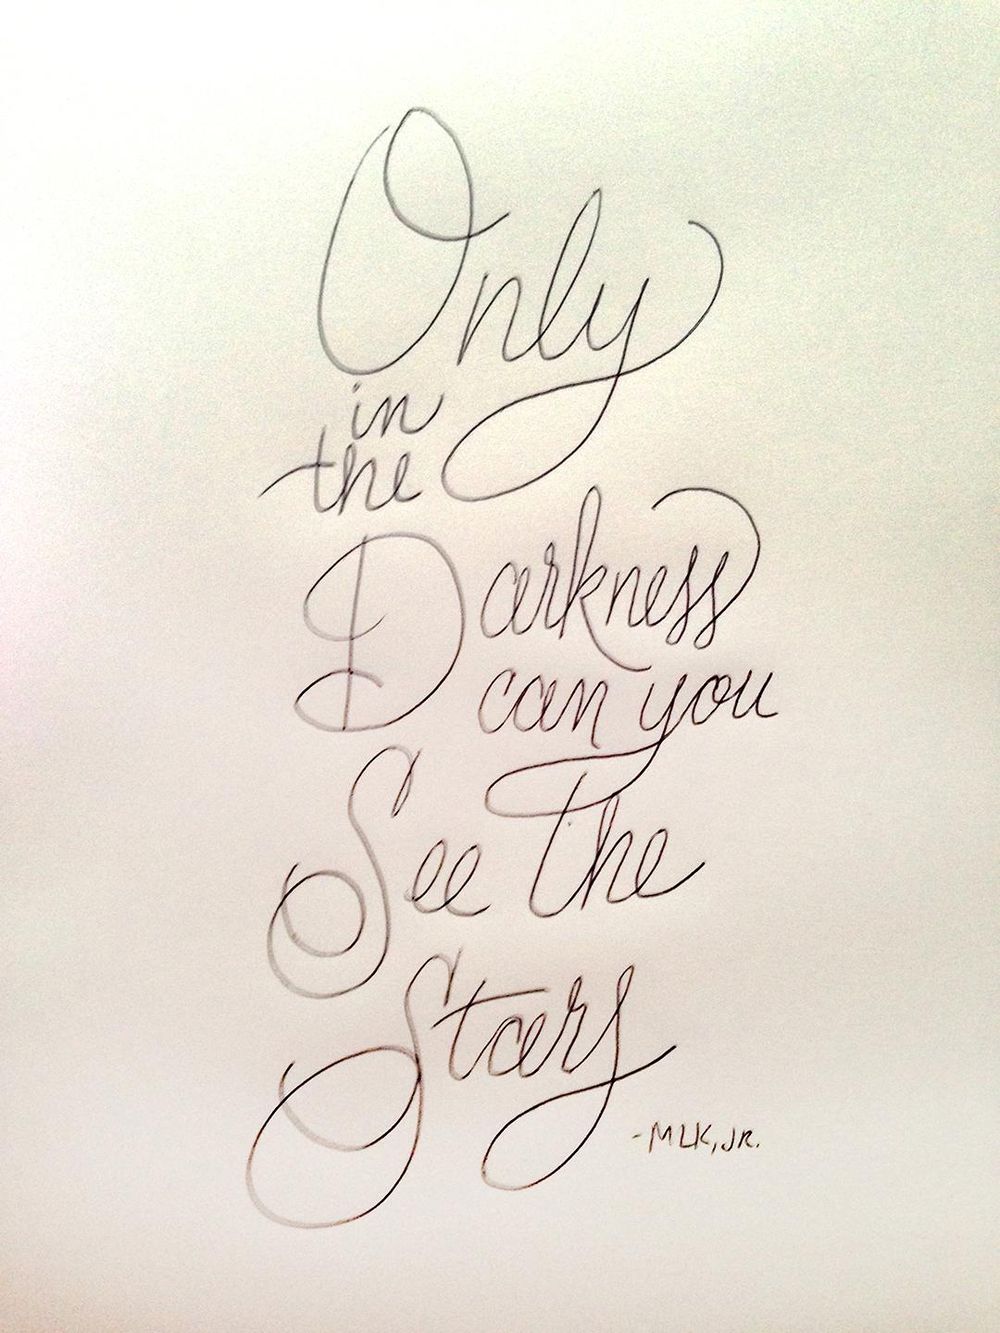 Only
in
the
Darkness
can you
See the
Stars
-MLK, JR.